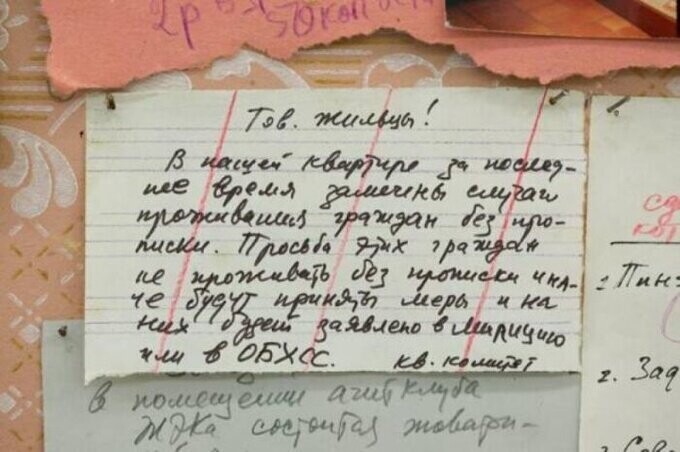 2р 50коп
Тов. жильцы!
В нашей квартире за послед-
нее время замечены случаи
проживания граждан без про-
писки. Просьба этих граждан
не проживать без прописки ина-
че будут приняты меры и на
них будет заявлено в милицию
или в ОБХСС. кв. комитет
в помещении агитклуба
ЖЭКа состоится товари-
1.
2. Зад